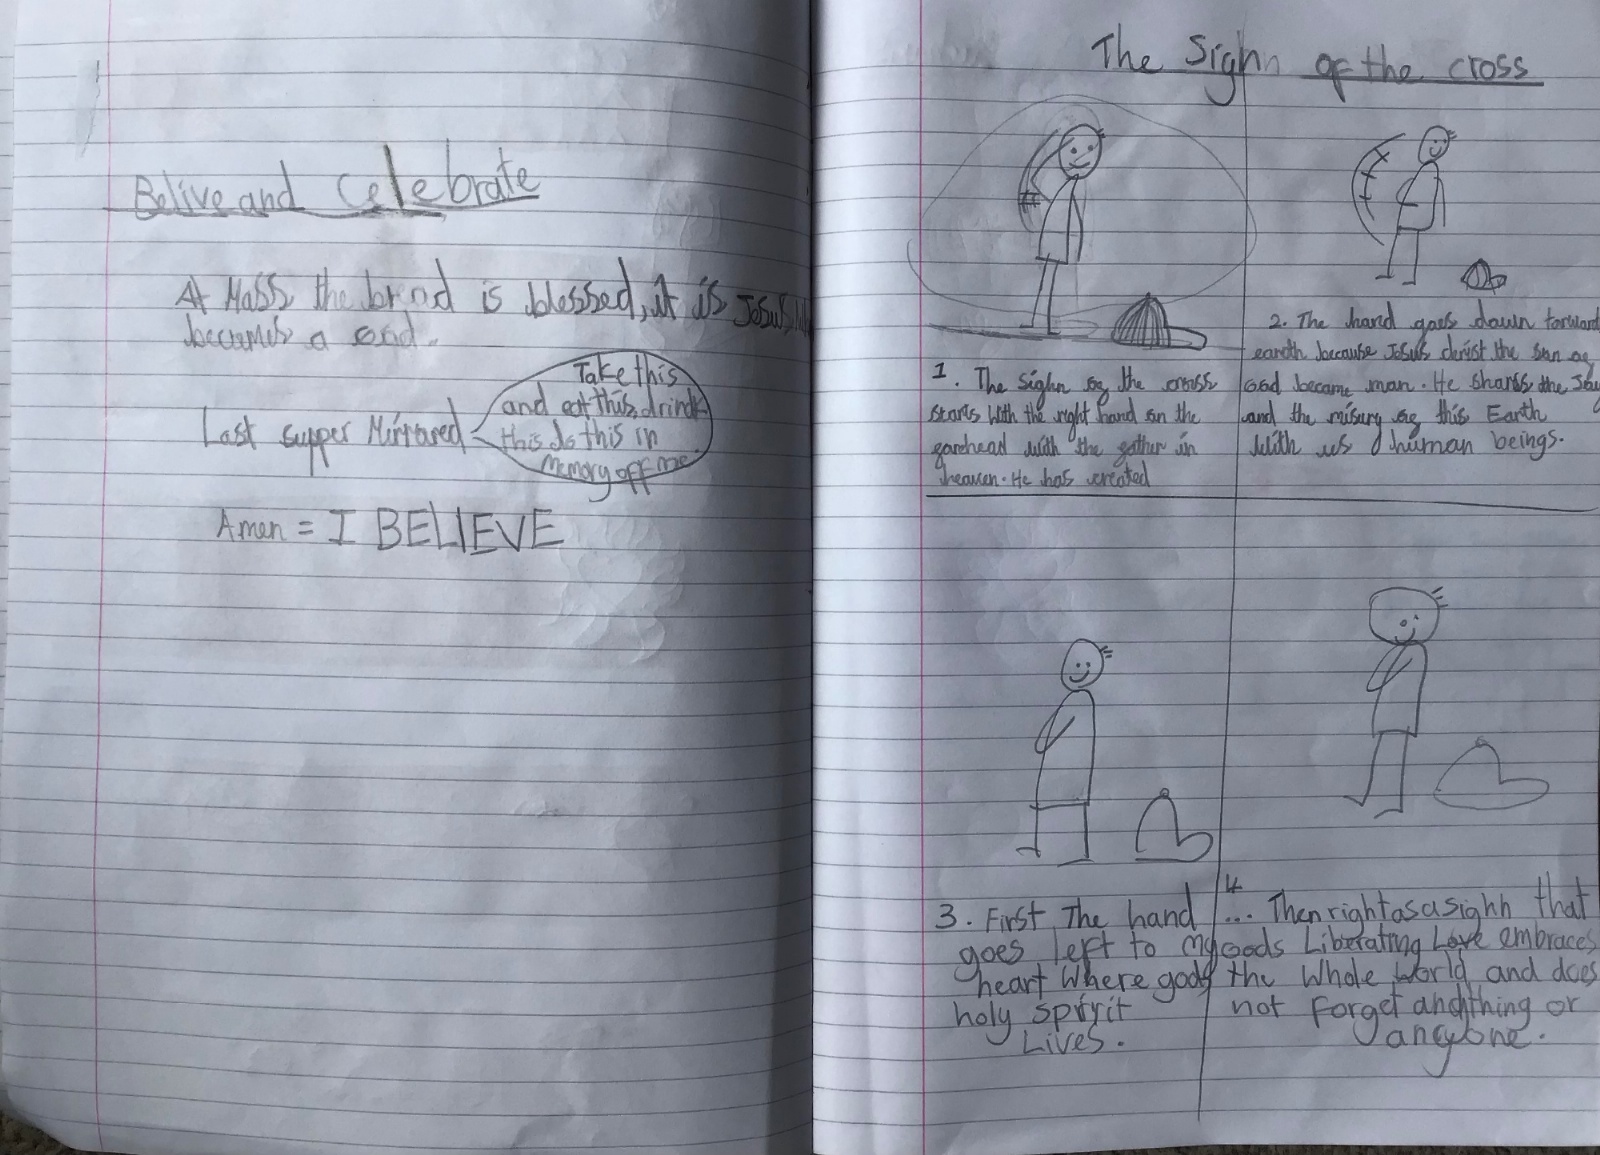 Belive and Celebrate
At Mass the bread is blessed, it is Jesus
becomes a
Last supper Mirrored
Take this
and eat this, drink
this do this in
memory off me.
Amen = I BELIEVE
The Sighn of the cross
1. The Sighn of the cross
starts with the right hand on the
forehead with the father in
heaven. He has created
2. The hand goes down torward
earth because Jesus the son of
God became man. He shares the Joy
and the misury of this Earth
with us human beings.
3. First The hand
goes left to my
heart where gods
holy spirit
Lives.
4
... Then right as a sighn that
Gods Liberating Love embraces
the whole world and does
not forget anything or
anyone.